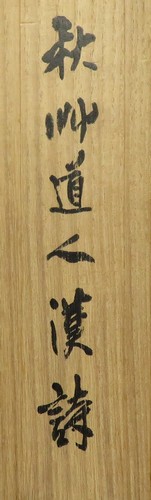 秋艸道人漢詩